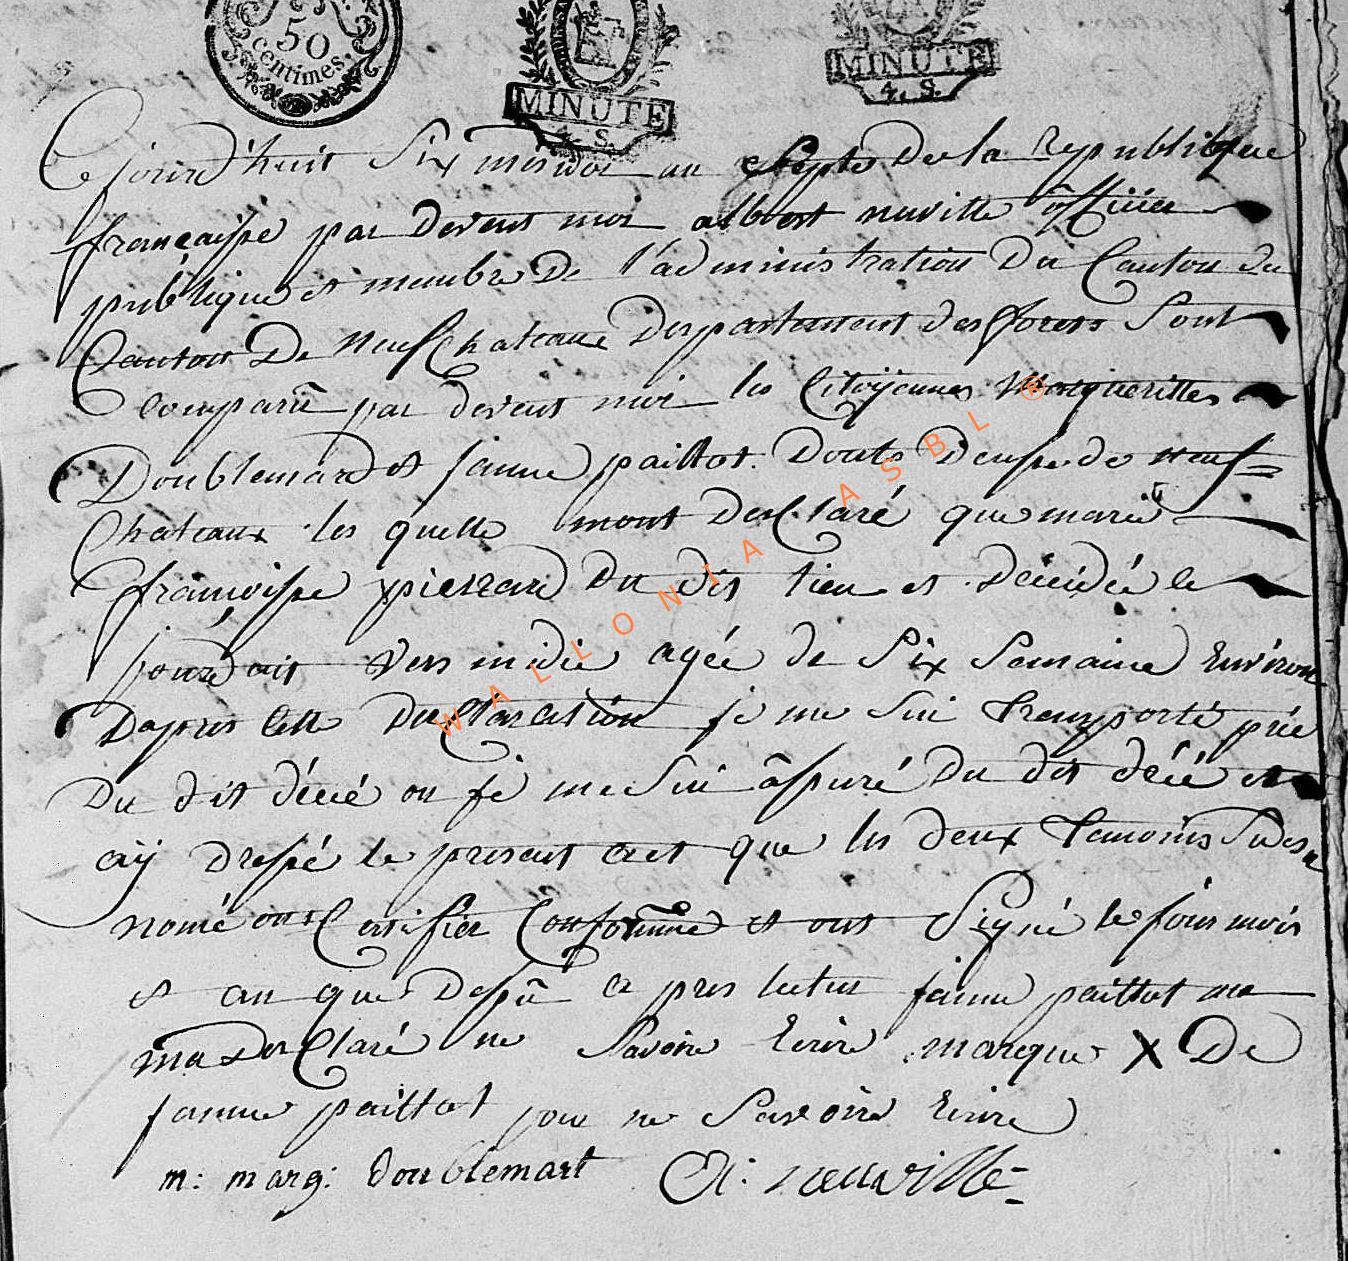 50
centimes.
MINUTE
4. S.
MINUTE
4. S.
Ce jourd'huit Six mesidor an Septe De la Republique
françaisse par Devent moi albert neuville officiier
publique et membre De l'administration Du Canton du
Canton De Neuf Chateaux Departement des forets Sont
Comparû par devent moi les Citoÿennes Margueritte
Doublemard et janne paillot. Douts Deusse de neuf=
Chateaux les quelle mont Desclaré que marie
françoisse pierrard Du dis lieu et décédée le
jourdait vers midie agée de Six Semaine Environt
Dapres cette Desclaration je me Sui Transporté prée
Du dis décée ou jé me Sui assuré Du dis décé et
aÿ dressé le present act que les deux Temoins Sudes
nomé ont Certifier Conforme et ont Signé le jour mois
et an que Desû a pres lectur janne paillot ma
ma Desclaré ne Savoire Ecrire marque X De
janne paillot pour ne Savoire Ecrire
m: marg: doublemart A: neuville
WALLONIA ASBL ®